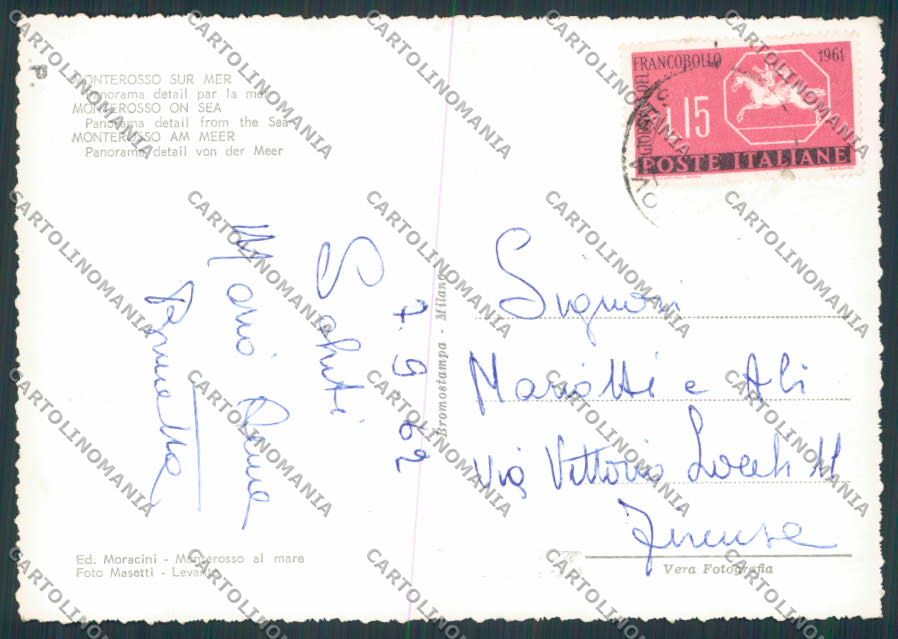 MONTEROSSO SUR MER
Panorama detail par la mer
MONTEROSSO ON SEA
Panorama detail from the Sea
MONTEROSSO AM MEER
Panorama detail von der Meer
7.9.62
Saluti
Mario
Ed. Moracini - Monterosso al mare
Foto Masetti - Levanto
Bromostampa - Milano
FRANCOBOLLO 1961
L15
POSTE ITALIANE
Signori
Mariotti e Ali
Via Vittorio Locchi 11
Firenze
Vera Fotografia
CARTOLINOMANIA